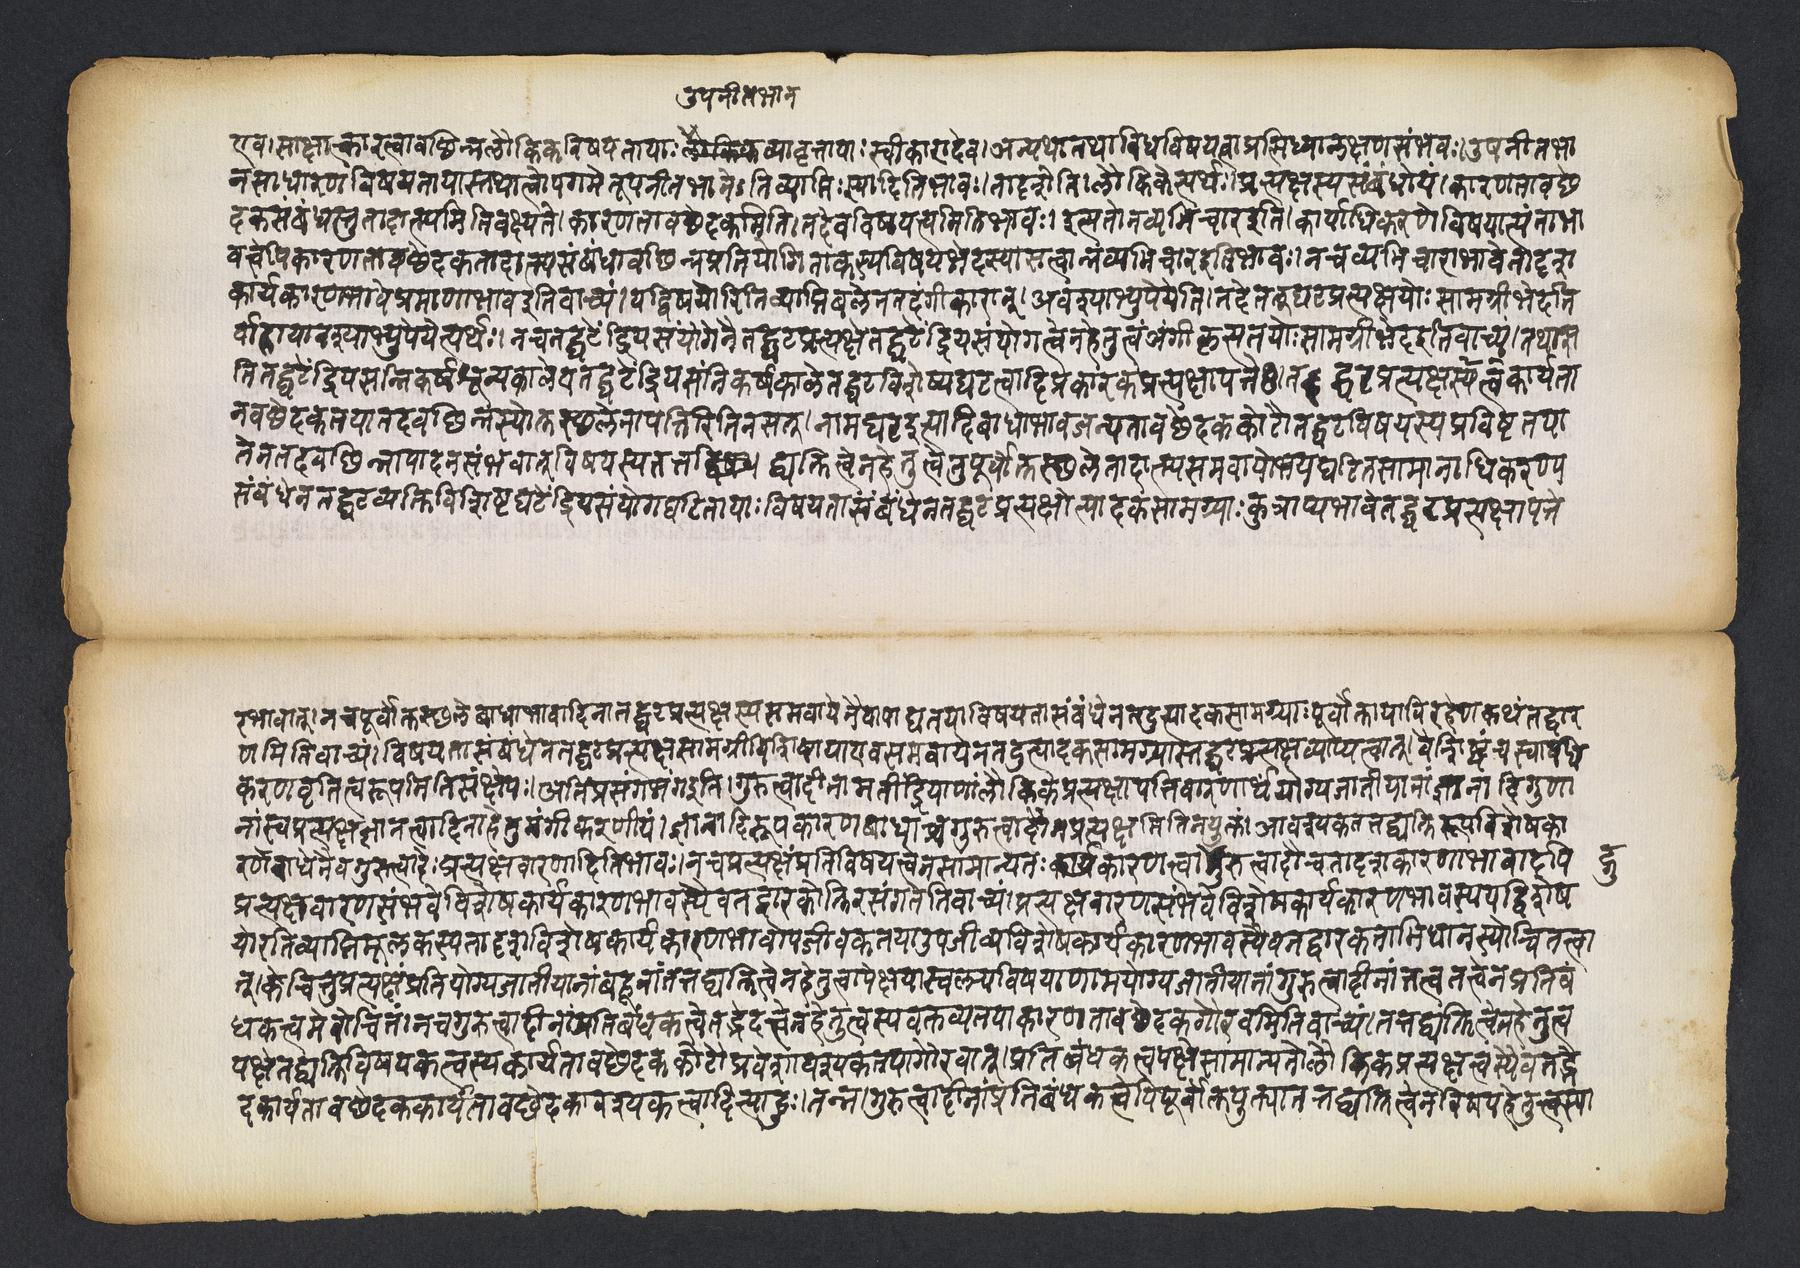 उपनीतभान
एव। साक्षात्कारत्वावछिन्नलौकिकविषयतायाः लौकिकव्यावृत्तायाः स्वीकारादेव। अन्यथा तथाविधविषयताप्रसिध्यालक्षणसंभवः। उपनीतभा
नसाधारणविषयतायास्तथात्वोपगमे तूपनीतभानेतिव्याप्तिः स्यादितिभावः। तादृशेति। लौकिकेत्यर्थः। प्रत्यक्षस्य संबंधोयं। कारणतावछे
दकसंबंधस्तु तादात्म्यमिति वक्ष्यते। कारणतावछेदकमिति। तदेव विषयत्वमितिभावः। इत्यतो न व्यभिचार इति। कार्याधिकरणे विषयात्यंताभा
वसत्वेपि कारणतावछेदकतादात्म्यसंबंधावछिन्नप्रतियोगिताकस्य विषयभेदस्यासत्वान्न व्यभिचार इतिभावः। न च व्यभिचाराभावे तादृश
कार्यकारणभावे प्रमाणाभाव इति वाच्यं। यद्विशेषयोरितिव्याप्तिबलेन तदंगीकारात्। अवश्याभ्युपेयेति। तदेतत्तद्घटप्रत्यक्षयोः सामग्रीभेदानि
र्वाहायावश्याभ्युपेयेत्यर्थः। न च तद्घटेंद्रियसंयोगेनैतद्घटप्रत्यक्षे तद्घटेंद्रियसंयोगत्वेन हेतुत्वं अंगीकृत्य तयोः सामग्रीभेद इति वाच्यं। तथा सि
ति तद्घटेंद्रियसन्निकर्षशून्यकाले एतद्घटेंद्रियसंनिकर्षकाले तद्घटविशेष्यघटत्वादिप्रकारकप्रत्यक्षापत्तेः। तद्घटप्रत्यक्षस्य कार्यता
नवछेदकतया तदवछिन्नस्योक्तस्थले नापत्तिरिति न सत्। नाम घट इत्यादिबाधाभावजन्यतावछेदककोटौ तद्घटविषयस्य प्रविष्टतया
तेन तदवछिन्नापादनसंभवात् विषयस्य तत्तद्व्यक्तित्वेन हेतुत्वे तु पूर्वोक्तस्थले तादात्म्यसमवायोभयघटितसामानाधिकरण्य
संबंधेन तद्घटव्यक्तिविशिष्टघटेंद्रियसंयोगघटितायाः विषयतासंबंधेन तद्घटप्रत्यक्षोत्पादकसामग्र्याः कुत्राप्यभावेन तद्घटप्रत्यक्षापत्ते
रभावात्। न च पूर्वोक्तस्थले बाधाभावादिना तद्घटप्रत्यक्षस्य समवायेनैवापाद्यतया विषयतासंबंधेन तदुत्पादकसामग्र्याः पूर्वोक्ताया विरहेण कथं तद्वार
णमिति वाच्यं। विषयतासंबंधेन तद्घटप्रत्यक्षसामग्रीविशिष्टाया एव समवायेन तदुत्पादकसामग्र्यास्तद्घटप्रत्यक्षव्याप्यत्वात्। वैशिष्ट्यं च स्वाधि
करणवृत्तित्वरूपमिति संक्षेपः। अतिप्रसंगभंग इति। गुरुत्वादीनामतींद्रियाणां लौकिकप्रत्यक्षापत्तिवारणार्थं योग्यजातीयानां ज्ञानादिगुणा
नां स्वप्रत्यक्षे ज्ञानत्वादिना हेतुत्वमंगीकरणीयं। ज्ञानादिरूपकारणबाधाच्च गुरुत्वादेर्न प्रत्यक्षमिति न युक्तं। आवश्यकतत्तद्व्यक्तिरूपविशेषका
रणबाधेनैव गुरुत्वादेः प्रत्यक्षवारणादितिभावः। न च प्रत्यक्षं प्रति विषयत्वेन सामान्यतः कार्यकारणत्वाद्गुरुत्वादौ च तादृशकारणाभावादपि
द्गु
प्रत्यक्षवारणसंभवे विशेषकार्यकारणभावस्यैव तद्वारकोक्तिरसंगतेति वाच्यं। प्रत्यक्षवारणसंभवे विशेषकार्यकारणभावस्य यद्विशेष
योरतिव्याप्तिमूलकस्य तादृशविशेषकार्यकारणभावोपजीवकतया उपजीव्यविशेषकार्यकारणभावस्यैव तद्वारकताभिधानस्योचितत्वा
त्। केचित्तु प्रत्यक्षं प्रति योग्यजातीयानां बहूनां तत्तद्व्यक्तित्वेन हेतुत्वापेक्षया स्वल्पविषयाणामयोग्यजातीयानां गुरुत्वादीनां तत्वतत्वेन प्रतिबं
धकत्वमेवोचितं। न च गुरुत्वादीनां प्रतिबंधकत्वे तद्भेदत्वेन हेतुत्वस्य वक्तव्यतया कारणतावछेदकगौरवमिति वाच्यं। तत्तद्व्यक्तित्वेन हेतुत्व
पक्षे तद्व्यक्तिविषयकत्वस्य कार्यतावछेदककोटौ प्रवेशावश्यकतया गौरवात्। प्रतिबंधकत्वपक्षे सामान्यतो लौकिकप्रत्यक्षत्वस्यैव तद्भे
दकार्यतावछेदककार्यतावछेदकावश्यकत्वादित्याहुः। तन्न। गुरुत्वादीनां प्रतिबंधकत्वेपि पूर्वोक्तयुक्त्या तत्तद्व्यक्तित्वेन विषयहेतुत्वस्या